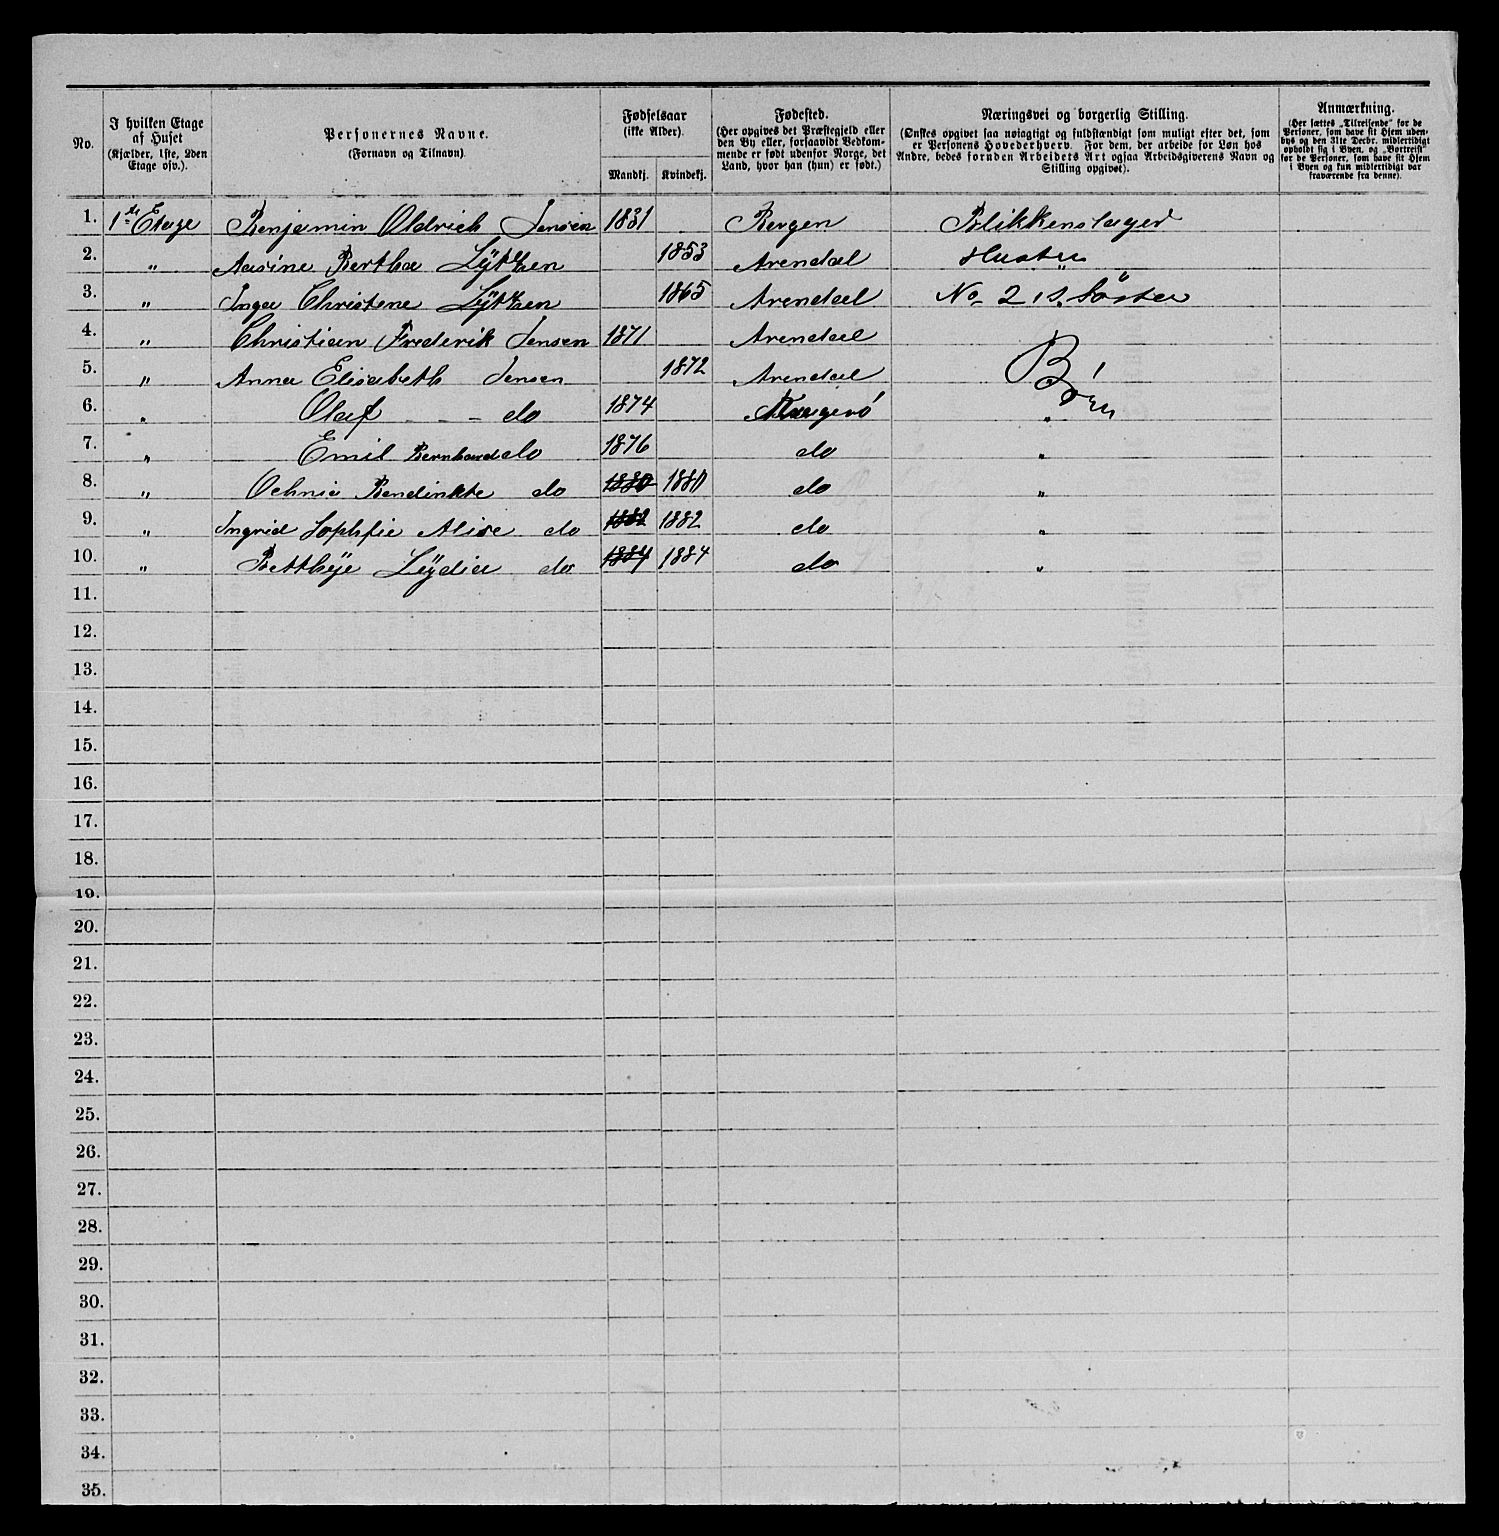 No. | I hvilken Etage af Huset (Kjælder, 1ste, 2den Etage osv.). | Personernes Navne. (Fornavn og Tilnavn). | Fødselsaar (ikke Alder). Mandkj. | Kvindekj. | Fødested. (Her opgives det Præstegjeld eller den By eller, forsaavidt Vedkommende er født udenfor Norge, det Land, hvor han (hun) er født.) | Næringsvei og borgerlig Stilling. (Ønskes opgivet saa nøiagtigt og fuldstændigt som muligt efter det, som er Personens Hovederhverv. For dem, der arbeide for Løn hos Andre, bedes foruden Arbeidets Art ogsaa Arbeidsgiverens Navn og Stilling opgivet). | Anmærkning. (Her sættes „Tilreisende" for de Personer, som have sit Hjem udenbys og den 31te Decbr. midlertidigt opholdt sig i Byen, og „Bortreist" for de Personer, som have sit Hjem i Byen og kun midlertidigt var fraværende fra denne).
1. | 1ste Etage | Benjamin Oldrich Jensen | 1831 | | Bergen | Blikkenslager
2. | " | Aasine Bertha Lÿtzen | | 1853 | Arendal | Hustru
3. | " | Inga Christine Lÿtzen | | 1865 | Arendal | No 2 's Söster
4. | " | Christian Frederik Jensen | 1871 | | Arendal
5. | " | Anna Elisabeth Jensen | | 1872 | Arendal | Börn
6. | " | Olaf - - do | 1874 | | | "
7. | " | Emil Bernhard do | 1876 | | do | "
8. | " | Bendinkte do | 1880 | 1880 | do | "
9. | " | Ingrid Sophfie Alise do | 1882 | 1882 | do | "
10. | " | Betthÿe Lÿdia do | 1884 | 1884 | do | "
11.
12.
13.
14.
15.
16.
17.
18.
19.
20.
21.
22.
23.
24.
25.
26.
27.
28.
29.
30.
31.
32.
33.
34.
35.